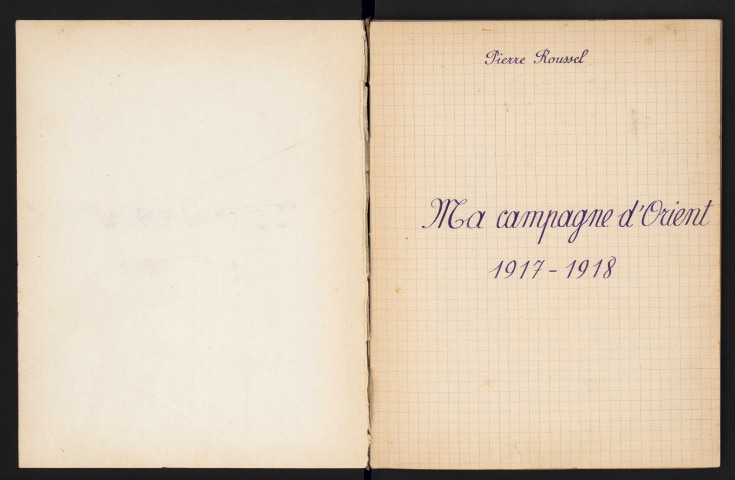 Pierre Roussel
Ma campagne d'Orient
1917 - 1918